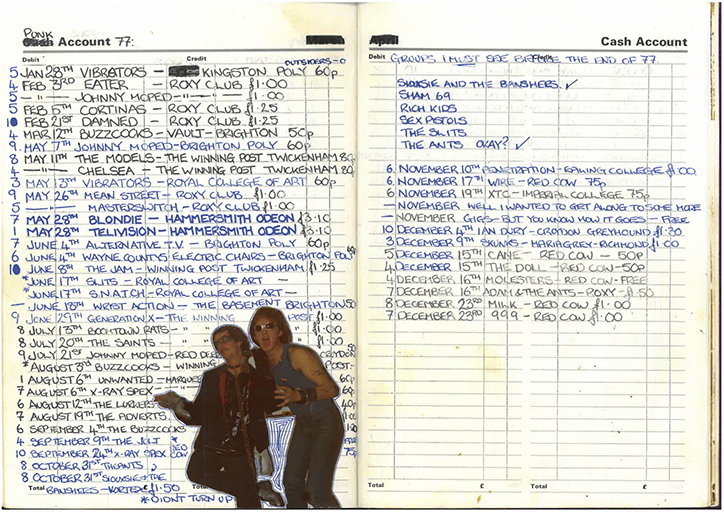 PUNK
Cash Account 77:
March
Debit
Credit
OUTSIDERS - 0
5 JAN 28TH VIBRATORS - KINGSTON POLY 60p
4 FEB 3RD EATER - ROXY CLUB £1.00
5 -"- JOHNNY MOPED -"- -"- £1.00
5 FEB 5TH CORTINAS - ROXY CLUB £1.25
10 FEB 21ST DAMNED - ROXY CLUB £1.25
4 MAR 12TH BUZZCOCKS - VAULT - BRIGHTON 50p
9 MAY 7TH JOHNNY MOPED - BRIGHTON POLY 60p
8 MAY 11TH THE MODELS - THE WINNING POST TWICKENHAM 80p
4 -"- CHELSEA - THE WINNING POST TWICKENHAM 80p
3 MAY 13TH VIBRATORS - ROYAL COLLEGE OF ART 60p
9 MAY 26TH MEAN STREET - ROXY CLUB £1.00
5 -"- MASTERSWITCH - ROXY CLUB £1.00
7 MAY 28TH BLONDIE - HAMMERSMITH ODEON £3.10
1 MAY 28TH TELIVISION - HAMMERSMITH ODEON £3.10
7 JUNE 4TH ALTERNATIVE T.V - BRIGHTON POLY 60p
6 JUNE 4TH WAYNE COUNTYS ELECTRIC CHAIRS - BRIGHTON POLY 60p
10 JUNE 8TH THE JAM - WINNING POST TWICKENHAM £1.25
* JUNE 17TH SLITS - ROYAL COLLEGE OF ART -
* JUNE 17TH S.N.A.T.C.H - ROYAL COLLEGE OF ART -
- JUNE 18TH WRIST ACTION - THE BASEMENT BRIGHTON 50
9 JUNE 29TH GENERATION X - THE WINNING POST £1.00
8 JULY 13TH BOOMTOWN RATS - " " £1.00
8 JULY 20TH THE SAINTS - " " £1.00
9 JULY 21ST JOHNNY MOPED - RED DEER CROYDON 50
* AUGUST 3RD BUZZCOCKS - WINNING POST -
1 AUGUST 6TH UNWANTED - MARQUEE 60p
7 AUGUST 6TH X-RAY SPEX - 60p
6 AUGUST 12TH THE LURKERS 40p
7 AUGUST 19TH THE ADVERTS
6 SEPTEMBER 4TH THE BUZZCOCKS
4 SEPTEMBER 9TH THE JOLT *
10 SEPTEMBER 24TH X-RAY SPEX RED COW 75p
8 OCTOBER 31ST THE ANTS
8 OCTOBER 31ST SIOUXSIE + THE
BANSHEES - VORTEX £1.50
Total
£
* DIDNT TURN UP
April
Cash Account
Debit
GROUPS I MUST SEE BEFORE THE END OF 77.
SIOUXSIE AND THE BANSHEES. ✓
SHAM 69
RICH KIDS
SEX PISTOLS
THE SLITS
THE ANTS OKAY? ✓
6 NOVEMBER 10TH PENETRATION - EALING COLLEGE £1.00
6 NOVEMBER 17TH WIRE - RED COW 75p
6 NOVEMBER 19TH XTC - IMPERIAL COLLEGE 75p
- NOVEMBER WELL I WANTED TO GET ALONG TO SOME MORE
- NOVEMBER GIGS - BUT YOU KNOW HOW IT GOES - FREE
10 DECEMBER 4TH IAN DURY - CROYDON GREYHOUND £1.30
3 DECEMBER 9TH SKUNKS - MARIA GREY - RICHMOND £1.00
5 DECEMBER 15TH CANE - RED COW - 50P
4 DECEMBER 15TH THE DOLL - RED COW - 50P
4 DECEMBER 16TH MOLESTERS - RED COW - FREE
7 DECEMBER 16TH ADAM & THE ANTS - ROXY - £1.50
8 DECEMBER 23RD MENACE - RED COW £1.00
7 DECEMBER 23RD 999 - RED COW £1.00
Total
£
Total
£